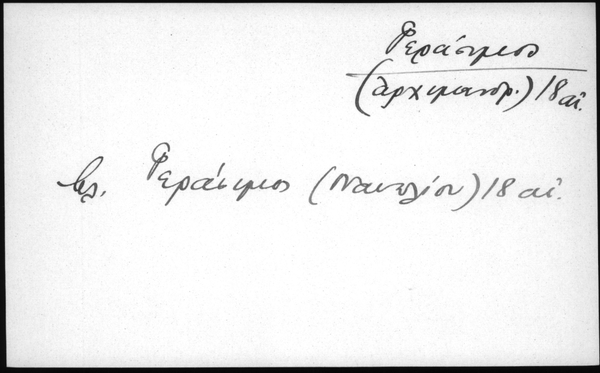 Γεράσιμος
(ἀρχιμανδρ.) 18 αἰ.
βλ. Γεράσιμος (Ναυπλίου) 18 αἰ.